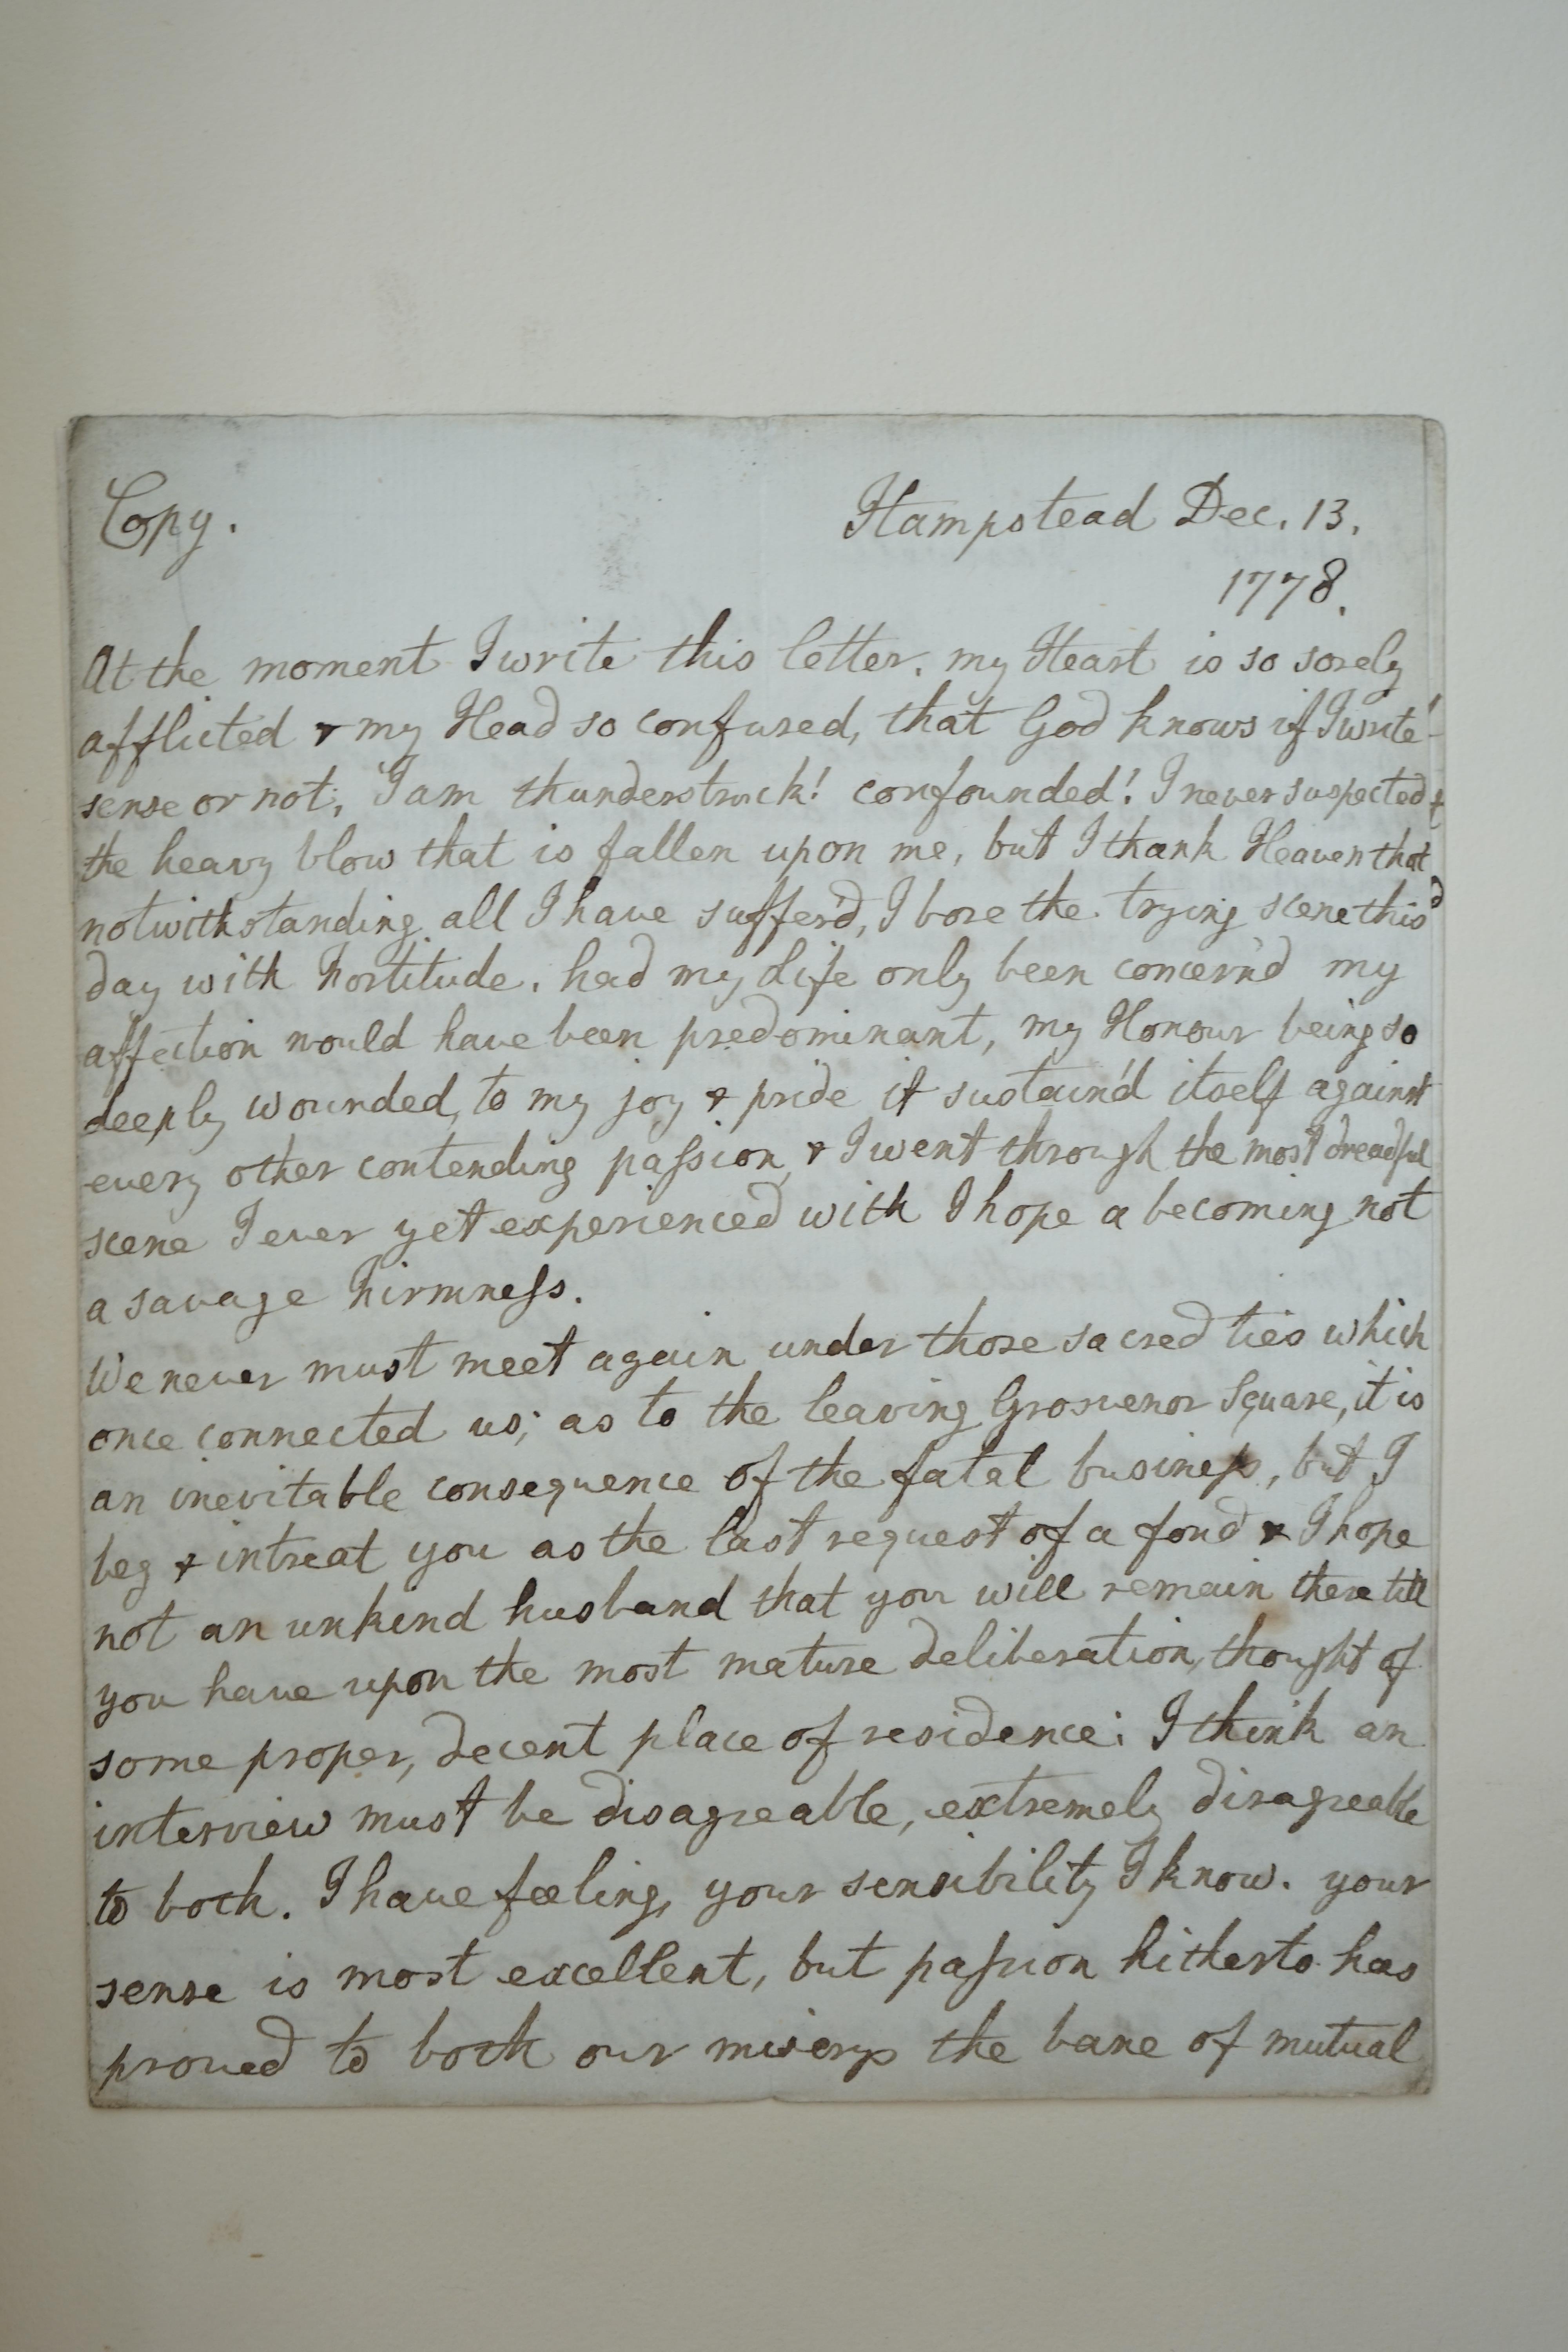 Copy.
Hampstead Dec. 13.
1778.
At the moment I write this letter, my Heart is so sorely
afflicted & my Head so confused, that God knows if I write
sense or not; I am thunderstruck! confounded! I never suspected
the heavy blow that is fallen upon me, but I thank Heaven that
notwithstanding all I have suffer'd, I bore the trying scene this
day with Fortitude. had my Life only been concern'd my
affection would have been predominant, my Honour being so
deeply wounded, to my joy & pride it sustain'd itself against
every other contending paſsion, & I went through the most dreadful
scene I ever yet experienced with I hope a becoming not
a savage Firmneſs.
We never must meet again under those sacred ties which
once connected us; as to the leaving Grosvenor Square, it is
an inevitable consequence of the fatal busineſs, but I
beg & intreat you as the last request of a fond & I hope
not an unkind husband that you will remain there till
you have upon the most mature deliberation, thought of
some proper, decent place of residence: I think an
interview must be disagreeable, extremely disagreeable
to both. I have feeling, your sensibility I know. your
sense is most excellent, but paſsion hitherto has
proved to both our miserys the bane of mutual